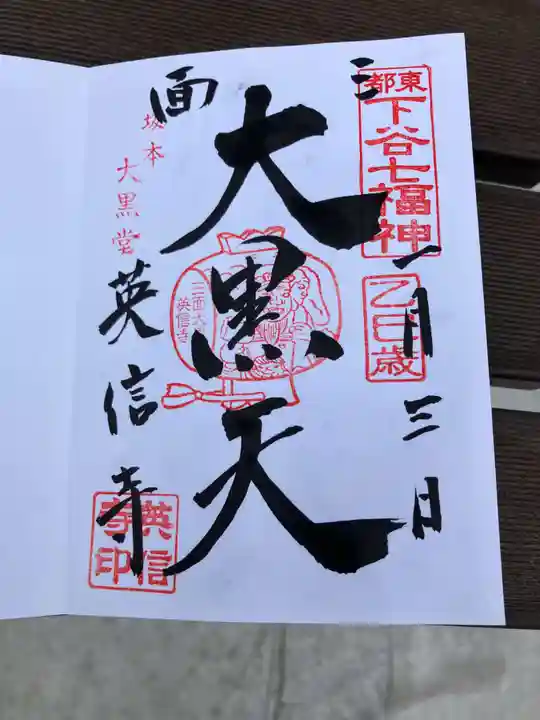 東都
下谷七福神
乙巳歳
三面
一月三日
大黒天
三面大黒天
英信寺
坂本
大黒堂
英信寺
英信寺印